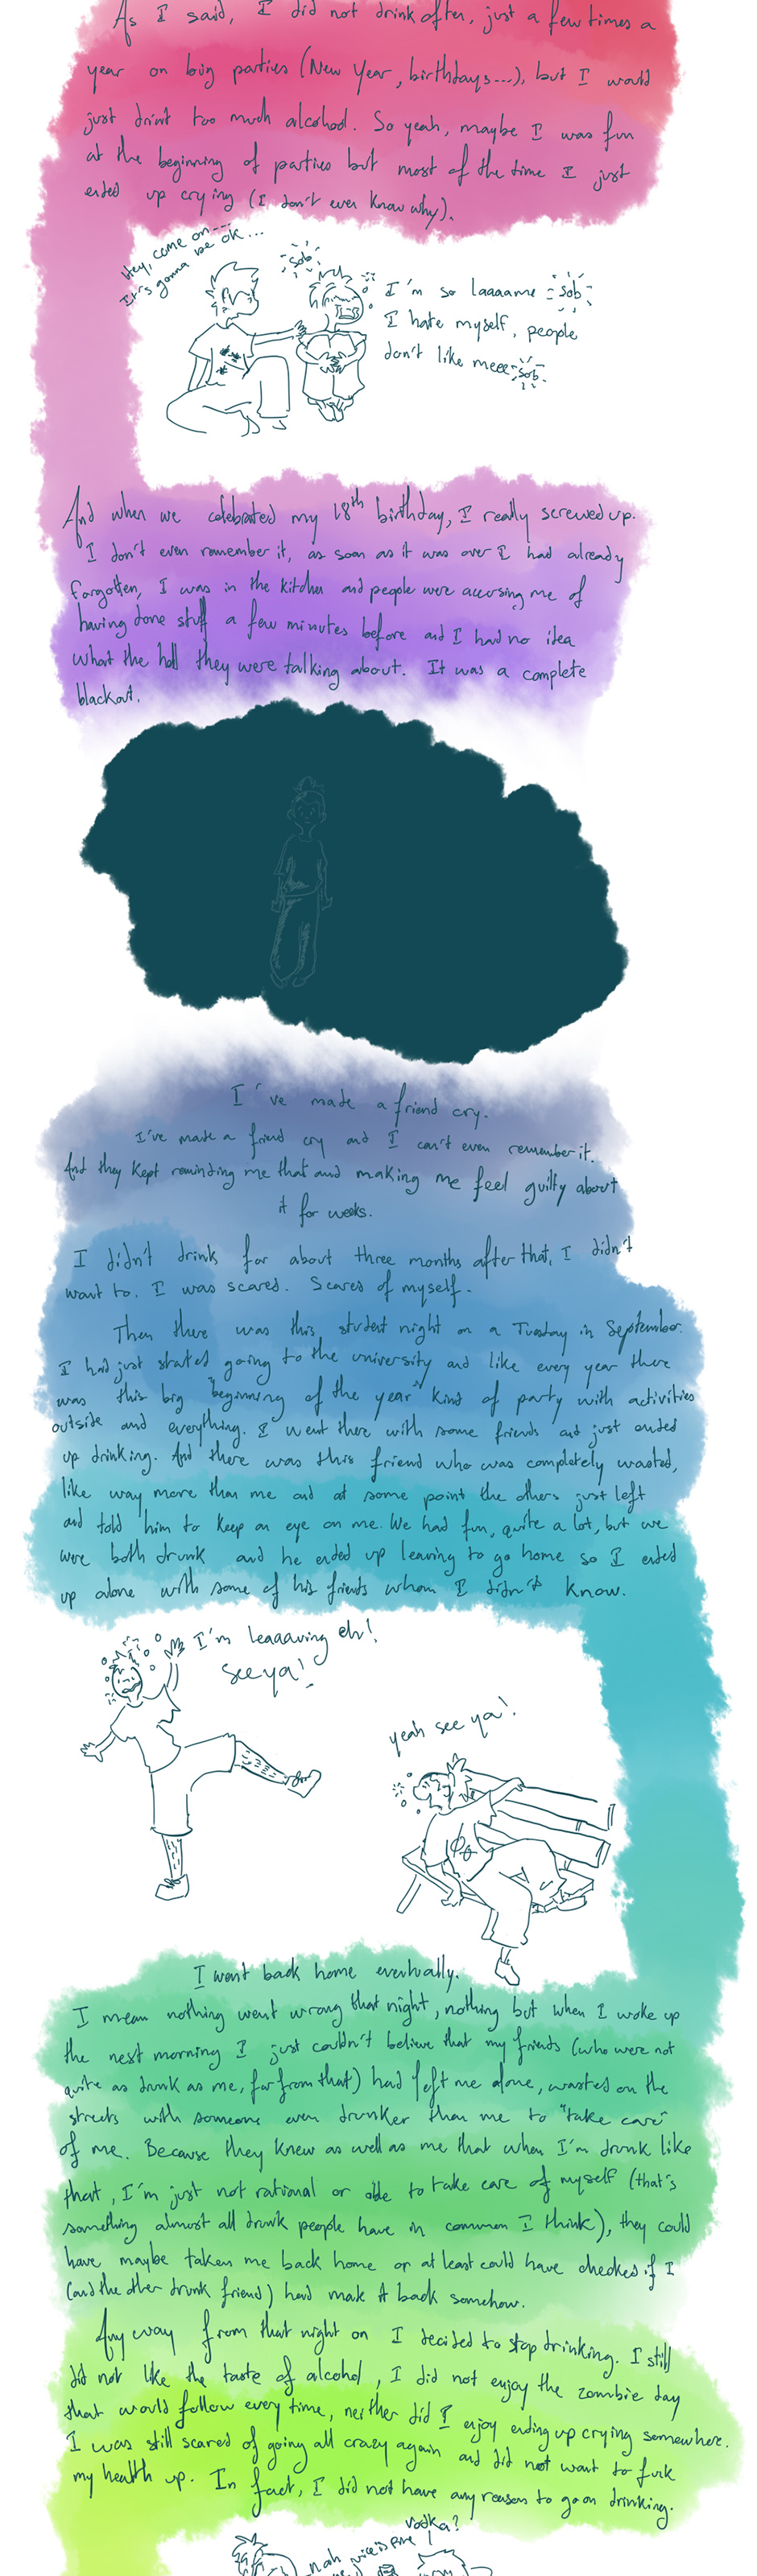 As I said, I did not drink often, just a few times a
year on big parties (New Year, birthdays...), but I would
just drint too much alcohol. So yeah, maybe I was fun
at the beginning of parties but most of the time I just
ended up crying (I don't even know why).
Hey, come on...
It's gonna be ok...
sob
I'm so laaaame sob
I hate myself, people
don't like meee sob
And when we celebrated my 18th birthday, I really screwed up.
I don't even remember it, as soon as it was over I had already
forgotten, I was in the kitchen and people were accusing me of
having done stuff a few minutes before and I had no idea
what the hell they were talking about. It was a complete
blackout.
I've made a friend cry.
I've made a friend cry and I can't even remember it.
And they kept reminding me that and making me feel guilty about
it for weeks.
I didn't drink for about three months after that, I didn't
want to. I was scared. Scared of myself.
Then there was this student night on a Tuesday in September.
I had just stated going to the university and like every year there
was this big "beginning of the year" kind of party with activities
outside and everything. I went there with some friends and just ended
up drinking. And there was this friend who was completely wasted,
like way more than me and at some point the others just left
and told him to keep an eye on me. We had fun, quite a lot, but we
were both drunk and he ended up leaving to go home so I ended
up alone with some of his friends whom I didn't know.
I'm leaaaving eh!
See ya!
yeah see ya!
I went back home eventually.
I mean nothing went wrong that night, nothing but when I woke up
the nest morning I just couldn't believe that my friends (who were not
quite as drunk as me, far from that) had left me alone, wasted on the
streets with someone even drunker than me to "take care"
of me. Because they knew as well as me that when I'm drunk like
that, I'm just not rational or able to take care of myself (that's
something almost all drunk people have in common I think), they could
have maybe taken me back home or at least could have checked if I
(and the other drunk friend) had make it back somehow.
Anyway from that night on I decided to stop drinking. I still
did not like the taste of alcohol, I did not enjoy the zombie day
that would follow every time, neither did I enjoy ending up crying somewhere.
I was still scared of going all crazy again and did not want to fuck
my health up. In fact, I did not have any reason to go on drinking.
vodka?
nah